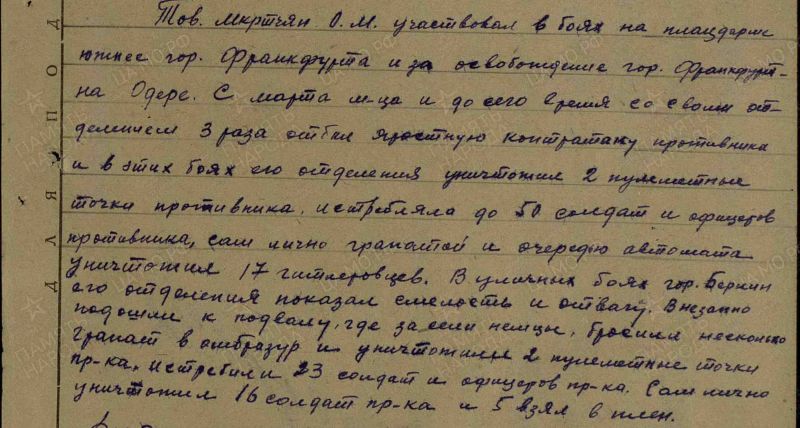 Тов. Мкртчян О.М. участвовал в боях на плацдарме
южнее гор. Франкфурта и за освобождение гор. Франкфурт-
на Одере. С марта м-ца и до сего время со своим от-
делением 3 раза отбил яростную контратаку противника
и в этих боях его отделения уничтожил 2 пулеметные
точки противника, истребляла до 50 солдат и офицеров
противника, сам лично гранатой и очередью автомата
уничтожил 17 гитлеровцев. В уличных боях гор. Берлин
его отделения показал смелость и отвагу. Внезапно
подошли к подвалу, где засели немцы, бросили несколько
гранат в амбразур и уничтожили 2 пулеметные точки
пр-ка, истребили 23 солдат и офицеров пр-ка. Сам лично
уничтожил 16 солдат пр-ка и 5 взял в плен.
ДЛЯ ПОД